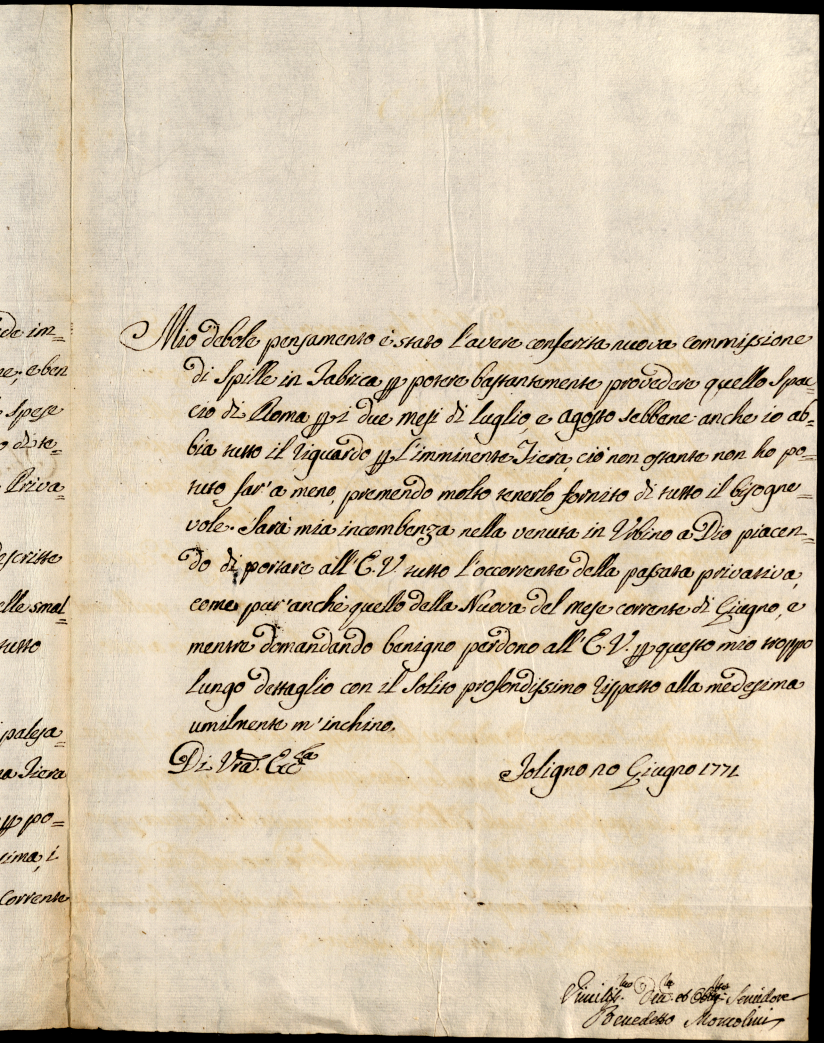 de im=
ne; e ben
Spese
o di te=
Priva=
escritte
elle smal=
tutto
palesa=
a Fiera
per po=
sima, i
Corrente
Mio debole pensamento è stato l'avere conferita nuova commissione
di Spille in Fabrica per potere bastantemente provedere quello Spac=
cio di Roma per i due mesi di Luglio, e Agosto sebbene anche io ab=
bia tutto il riguardo per l'imminente Fiera, ciò non ostante non ho po=
tuto far' a meno, premendo molto tenerlo fornito di tutto il bisogne=
vole. Sarà mia incombenza nella venuta in Urbino a Dio piacen=
do di portare all'E. V. tutto l'occorrente della passata privativa,
come pur' anche quello della Nuova del mese corrente di Giugno, e
mentre domandando benigno perdono all'E. V. per questo mio troppo
lungo dettaglio con il solito profondissimo rispetto alla medesima
umilmente m'inchino.
Di Vra. Ecc.za
Foligno 20 Giugno 1771
Umiliss.mo Dev.mo ed Obbl.mo Servidore
Benedetto Morcolini